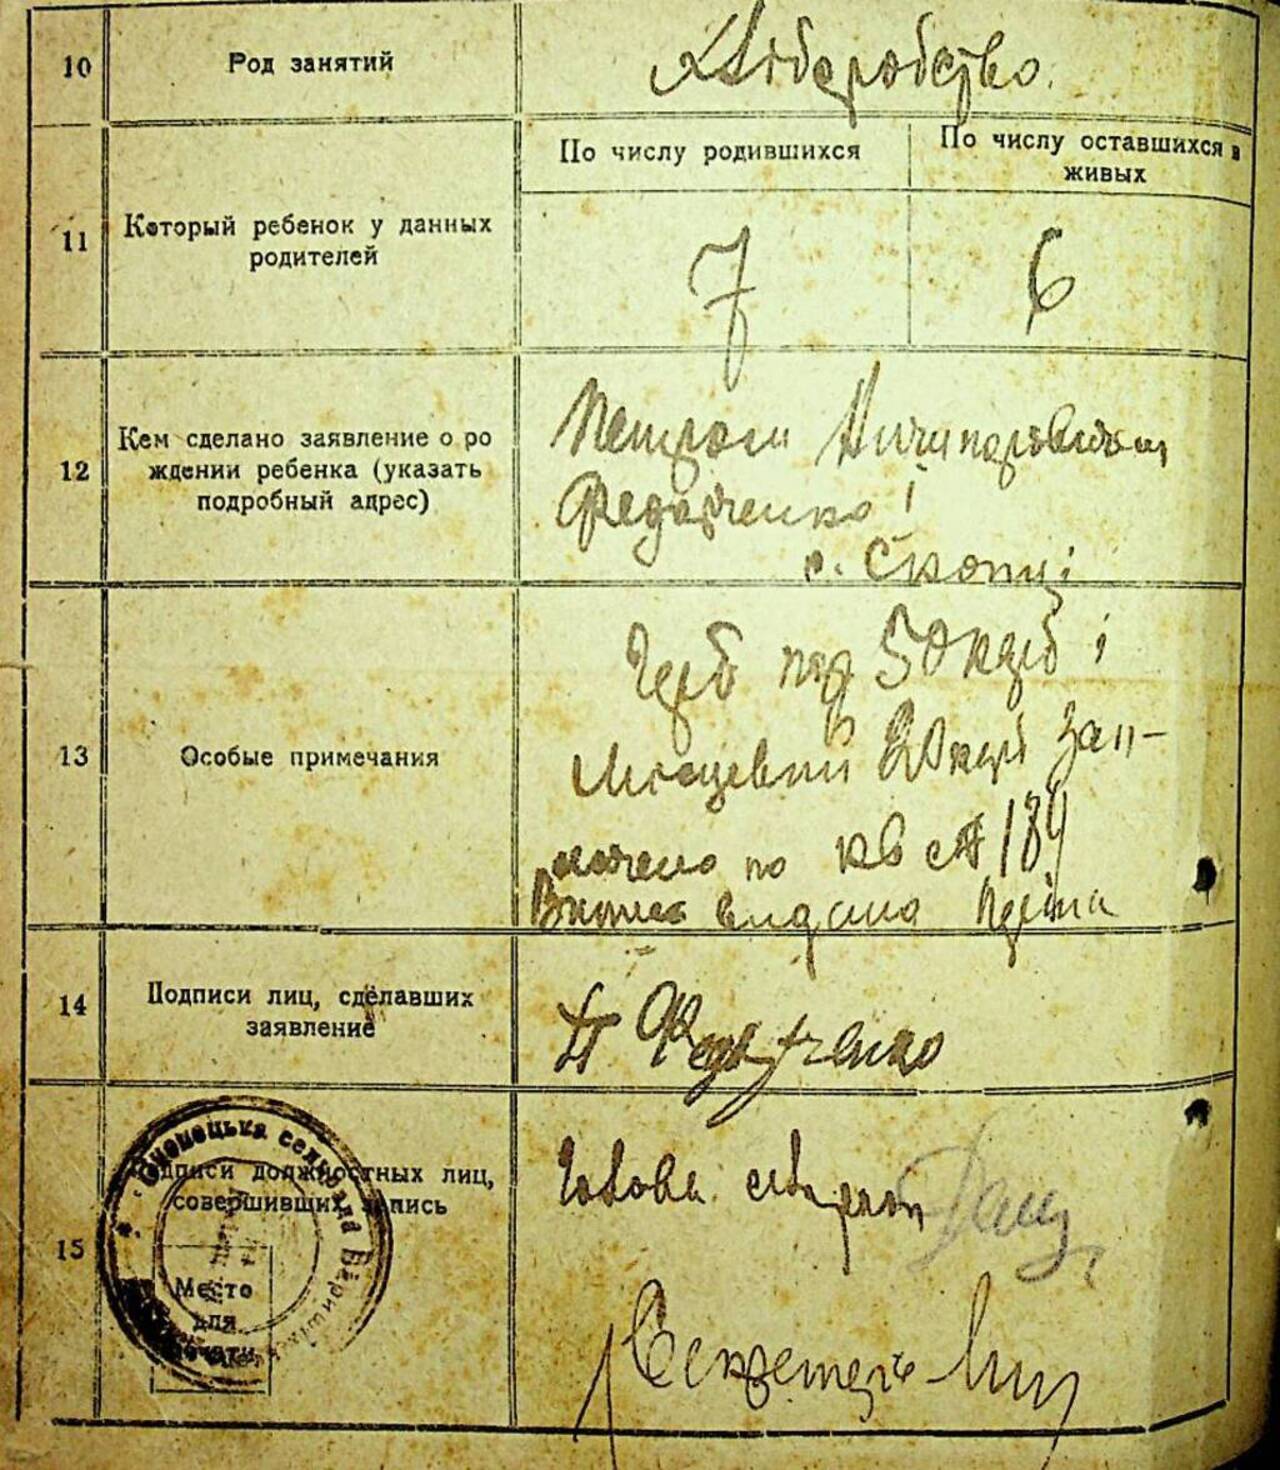 10 Род занятий Хліборобство.
По числу родившихся По числу оставшихся в
живых
11 Который ребенок у данных
родителей
7 6
12 Кем сделано заявление о ро
ждении ребенка (указать
подробный адрес)
Петром Ничипоровичом
Федотченко
с. Скопці
13 Особые примечания
Герб під 50 карб і
Місцевий карб Зап-
лачено по кв № 189
Виписка видана
14 Подписи лиц, сделавших
заявление
П Федотченко
15 Подписи должностных лиц,
совершивших запись
Голова сільради
Место
для
печати
Секретарь